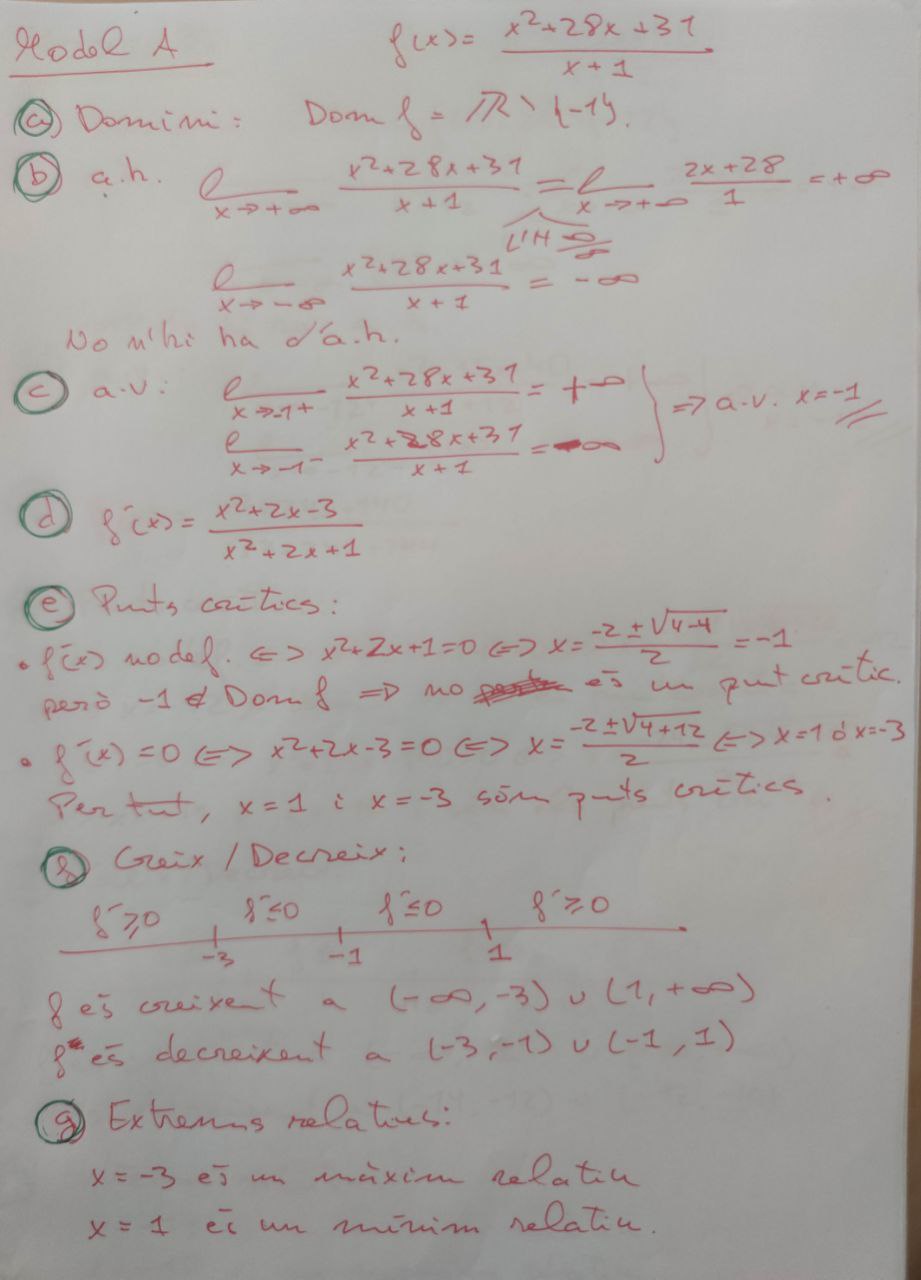 Model A f(x) = (x²+28x+31)/(x+1)
a) Domini: Dom f = ℝ \ {-1}.
b) a.h. l_{x→+∞} (x²+28x+31)/(x+1) = l_{x→+∞} (2x+28)/1 = +∞
L'H ∞/∞
l_{x→-∞} (x²+28x+31)/(x+1) = -∞
No n'hi ha d'a.h.
c) a.v: l_{x→-1+} (x²+28x+31)/(x+1) = +∞
l_{x→-1-} (x²+28x+31)/(x+1) = -∞ } => a.v. x=-1
d) f'(x) = (x²+2x-3)/(x²+2x+1)
e) Punts crítics:
• f'(x) no def. <=> x²+2x+1=0 <=> x = (-2±√(4-4))/2 = -1
però -1 ∉ Dom f => no és un punt crític.
• f'(x) = 0 <=> x²+2x-3=0 <=> x = (-2±√(4+12))/2 <=> x=1 ó x=-3
Per tant, x=1 i x=-3 són punts crítics.
f) Creix / Decreix:
f'≥0 f'≤0 f'≤0 f'≥0
-3 -1 1
f és creixent a (-∞,-3) ∪ (1,+∞)
f és decreixent a (-3,-1) ∪ (-1,1)
g) Extrems relatius:
x=-3 és un màxim relatiu
x=1 és un mínim relatiu.